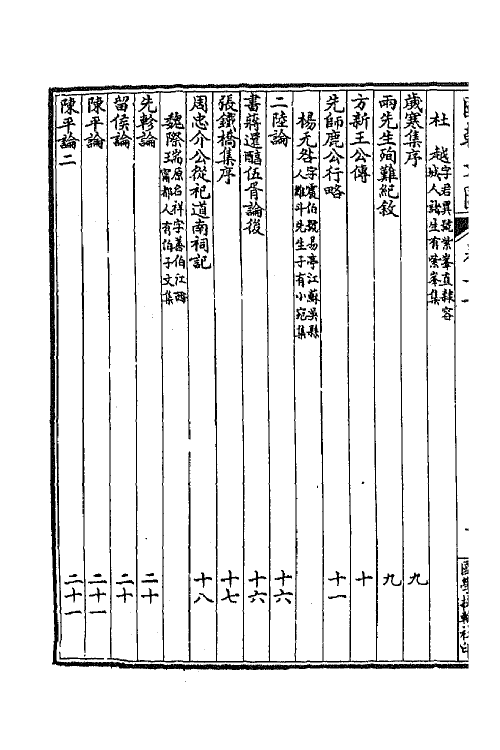 國學扶輪社印
杜越 字君異號紫峯直隸容城人諸生有紫峯集
歲寒集序 九
兩先生殉難紀敘 九
方新王公傳 十
先師鹿公行略 十一
楊无咎 字震伯號易亭江蘇吳縣人維斗先生子有小宛集
二陸論 十六
書蔣遺醇伍胥論後 十六
張鐵橋集序 十七
周忠介公從祀道南祠記 十八
魏際瑞 原名祥字善伯江西寧都人有伯子文集
先軫論 二十
留侯論 二十
陳平論 二十一
陳平論二 二十一